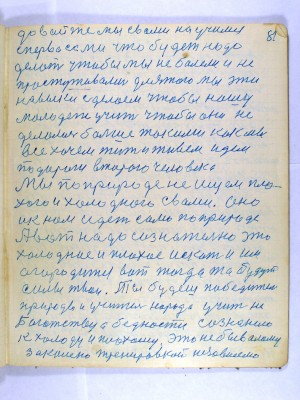 81
довайте мы свами научимся
сперва сами что будет надо
делат чтобы мы не балели и не
простуживалис для этого мы эти
навыки сделаем чтобы нашу
молодеж учит чтобы они не
делалис балше такими как мы
все хочем жит и живем идем
по дороги второго человека
Мы по природе не ищем пло-
хого и холодного свами. Оно
ик нам идет само по природе
А вот надо сознателно это
холодное и плохое искат и им
огородится вот тогда та будут
силы твои. Ты будеш победител
природы и учител народа учит не
Богатству а бедности сознанию
к холоду и плохому, это небывалому
закалено тренировкой независимо